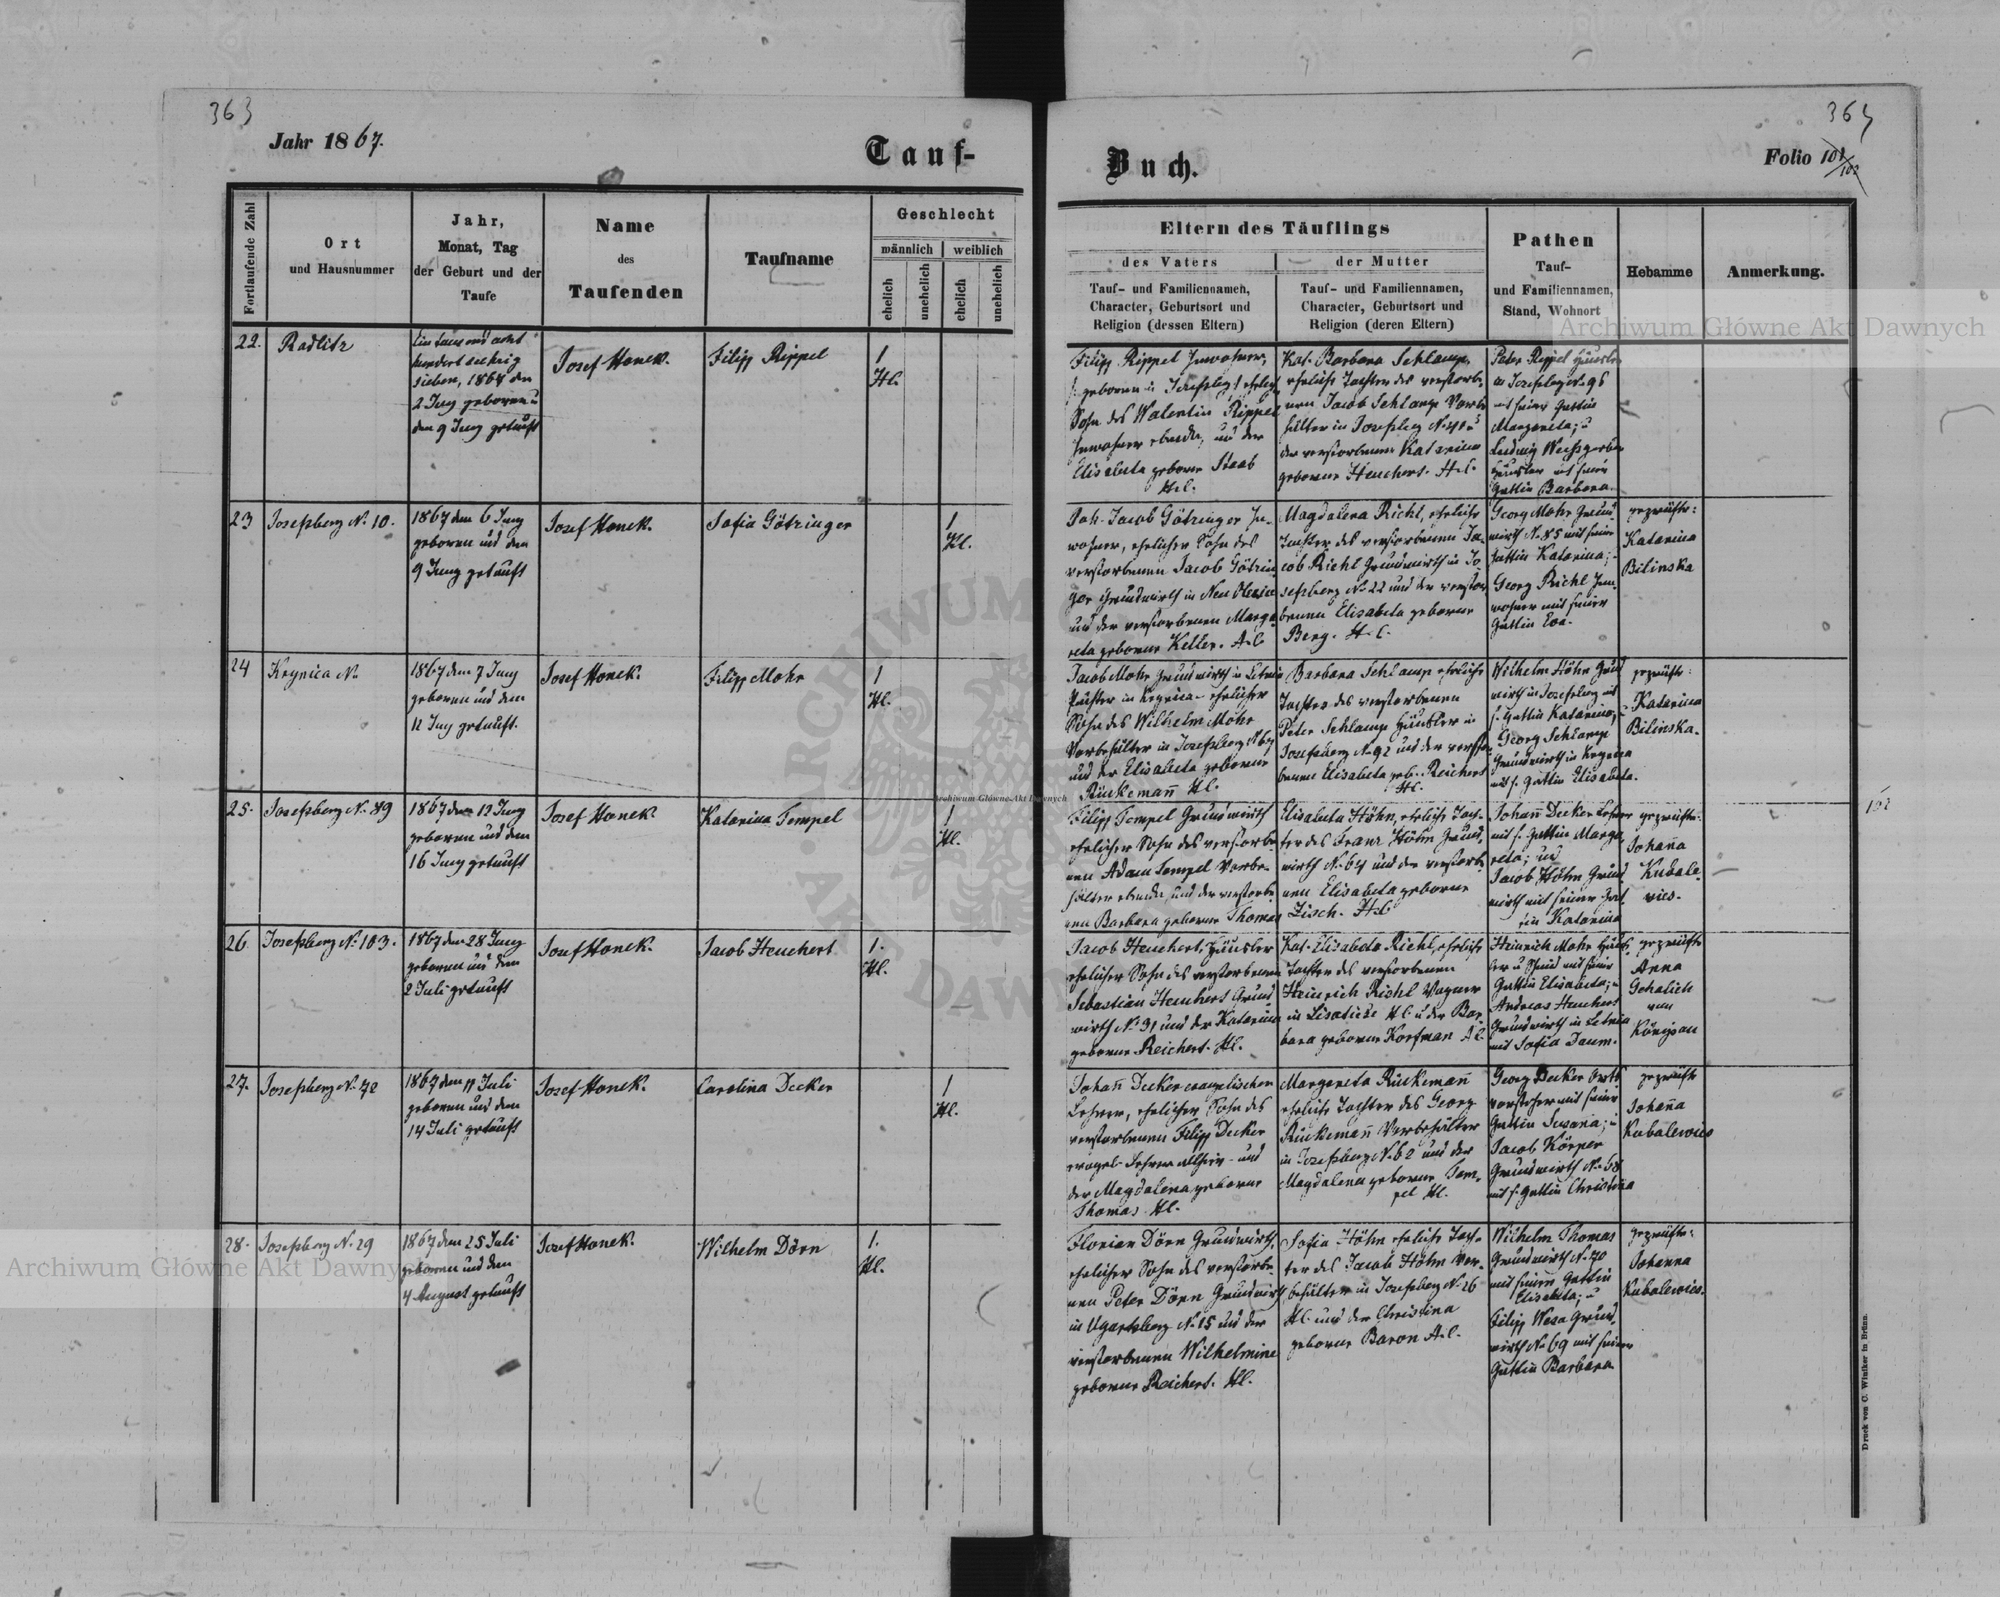 363
364
Jahr 1867.
Tauf-
Buch.
Folio 101/102
Fortlaufende Zahl
Ort
und Hausnummer
Jahr,
Monat, Tag
der Geburt und der
Taufe
Name
des
Taufenden
Taufname
Geschlecht
männlich
weiblich
ehelich
unehelich
ehelich
unehelich
Eltern des Täuflings
des Vaters
Tauf- und Familiennamen,
Character, Geburtsort und
Religion (dessen Eltern)
der Mutter
Tauf- und Familiennamen,
Character, Geburtsort und
Religion (deren Eltern)
Pathen
Tauf-
und Familiennamen,
Stand, Wohnort
Hebamme
Anmerkung.
22.
Radlitz
hundert sechzig
sieben, 1867 den
2 Juny geboren u
den 9 Juny getauft
Josef Honek.
Filipp Rippel
1
H.C.
Filipp Rippel Inwohner,
geboren in Josefsberg ehelich
Sohn des Walentin Rippel
Inwohner und der
Elisabeta geborne Staab
H.C.
Kat. Barbara Schlamp,
eheliche Tochter des verstorbe-
nen Jacob Schlamp Vorbe
hälter in Josefsberg
der verstorbenen Katarina
geborne Heuchert. H.C.
Peter Rippel Häusler
in Josefsberg N. 96
mit seiner Gattin
Margareta; u
Ludwig Weissgerber
Häusler mit seiner
Gattin Barbara.
23
Josefsberg N. 10.
1867 den 6 Juny
geboren und den
9 Juny getauft
Josef Honek.
Sofia Götzinger
1
H.C.
Joh. Jacob Götzinger In-
wohner, ehelicher Sohn des
verstorbenen Jacob Götzin
ger Grundwirth in Neu Olexin
und der verstorbenen Marga-
reta geborne Keller. A.C.
Magdalena Richl, eheliche
Tochter des verstorbenen Ja-
cob Richl Grundwirth in Jo
sefsberg N. 22 und der verstor
benen Elisabeta geborne
Berg. H.C.
Georg Mohr Grund-
wirth N. 85 mit seiner
Gattin Katarina;
Georg Richl Inn-
wohner mit seiner
Gattin Eva.
geprüfte:
Katarina
Bilinska
24
Krynica N.
1867 den 7 Juny
geboren und den
12 Juny getauft.
Josef Honek.
Filipp Mohr
1
H.C.
Jacob Mohr Grundwirth in Letnia
Pächter in Krynica - ehelicher
Sohn des Wilhelm Mohr
Vorbehälter in Josefsberg N. 67
und der Elisabeta geborne
Rückemañ H.C.
Barbara Schlamp eheliche
Tochter des verstorbenen
Peter Schlamp Häusler in
Josefsberg N. 92 und der verstor
benen Elisabeta geb. Reichert
H.C.
Wilhelm Höhn Grund
wirth in Josefsberg mit
s. Gattin Katarina;
Georg Schlamp
Grundwirth in Krynica
mit s. Gattin Elisabeta.
geprüfte:
Katarina
Bilinska.
25.
Josefsberg N. 89
1867 den 12 Juny
geboren und den
16 Juny getauft
Josef Honek.
Katarina Tempel
1
H.C.
Filipp Tempel Grundwirth
ehelicher Sohn des verstorbe
nen Adam Tempel Vorbe-
hälter und der verstorbe
nen Barbara geborne Thomas
Elisabeta Höhn, eheliche Toch-
ter des Franz Höhn Grund,
wirth N. 64 und der verstorbe
nen Elisabeta geborne
Zisch. H.C.
Johañ Decker Lehrer
mit s. Gattin Marga
reta; und
Jacob Höhn Grund
wirth mit seiner Gat
tin Katarina
geprüfte:
Johaña
Kubale-
vics.
102
26.
Josefsberg N. 103.
1867 den 28 Juny
geboren und den
2 Juli getauft
Josef Honek.
Jacob Heuchert
1.
H.C.
Jacob Heuchert, Häusler
ehelicher Sohn des verstorbenen
Sebastian Heuchert Grund
wirth N. 31 und der Katarina
geborne Reichert. H.C.
Kat. Elisabeta Richl, eheliche
Tochter des verstorbenen
Heinrich Richl Wagner
in Lisaticze H.C. u der Bar-
bara geborne Korfman A.C.
Heinrich Mohr Häus-
ler u Schmid mit seiner
Gattin Elisabeta; u
Andreas Heuchert
Grundwirth in Letnia
mit Sofia Daum.
geprüfte
Anna
Gehalich
von
Königsau
27.
Josefsberg N. 72
1867 den 11 Juli
geboren und den
14 Juli getauft
Josef Honek.
Carolina Decker
1
H.C.
Johañ Decker evangelischer
Lehrer, ehelicher Sohn des
verstorbenen Filipp Decker
evangel. Lehrer allhier - und
der Magdalena geborne
Thomas H.C.
Margareta Rückemañ
eheliche Tochter des Georg
Rückemañ Vorbehälter
in Josefsberg N. 62 und der
Magdalena geborne Tem-
pel H.C.
Georg Decker Orts
vorsteher mit seiner
Gattin Susana; u
Jacob Körper
Grundwirth N. 68
mit s. Gattin Christina
geprüfte
Johaña
Kubalewics
28.
Josefsberg N. 29
1867 den 25 Juli
geboren und den
4 August getauft
Josef Honek.
Wilhelm Dörn
1.
H.C.
Florian Dörn Grundwirth,
ehelicher Sohn des verstorbe
nen Peter Dörn Grundwirth
in Ugartsberg N. 15 und der
verstorbenen Wilhelmine
geborne Reichert. H.C.
Sofia Höhn eheliche Toch-
ter des Jacob Höhn Vor-
behälter in Josefsberg N. 26
H.C. und der Christina
geborne Baron A.C.
Wilhelm Thomas
Grundwirth N. 70
mit seiner Gattin
Elisabeta; u
Filipp Wesa Grund,
wirth N. 69 mit seiner
Gattin Barbara
geprüfte:
Johanna
Kubalewics.
Druck von C. Winiker in Brünn.
Archiwum Główne Akt Dawnych
Archiwum Główne Akt Dawnych
Archiwum Główne Akt Dawnych